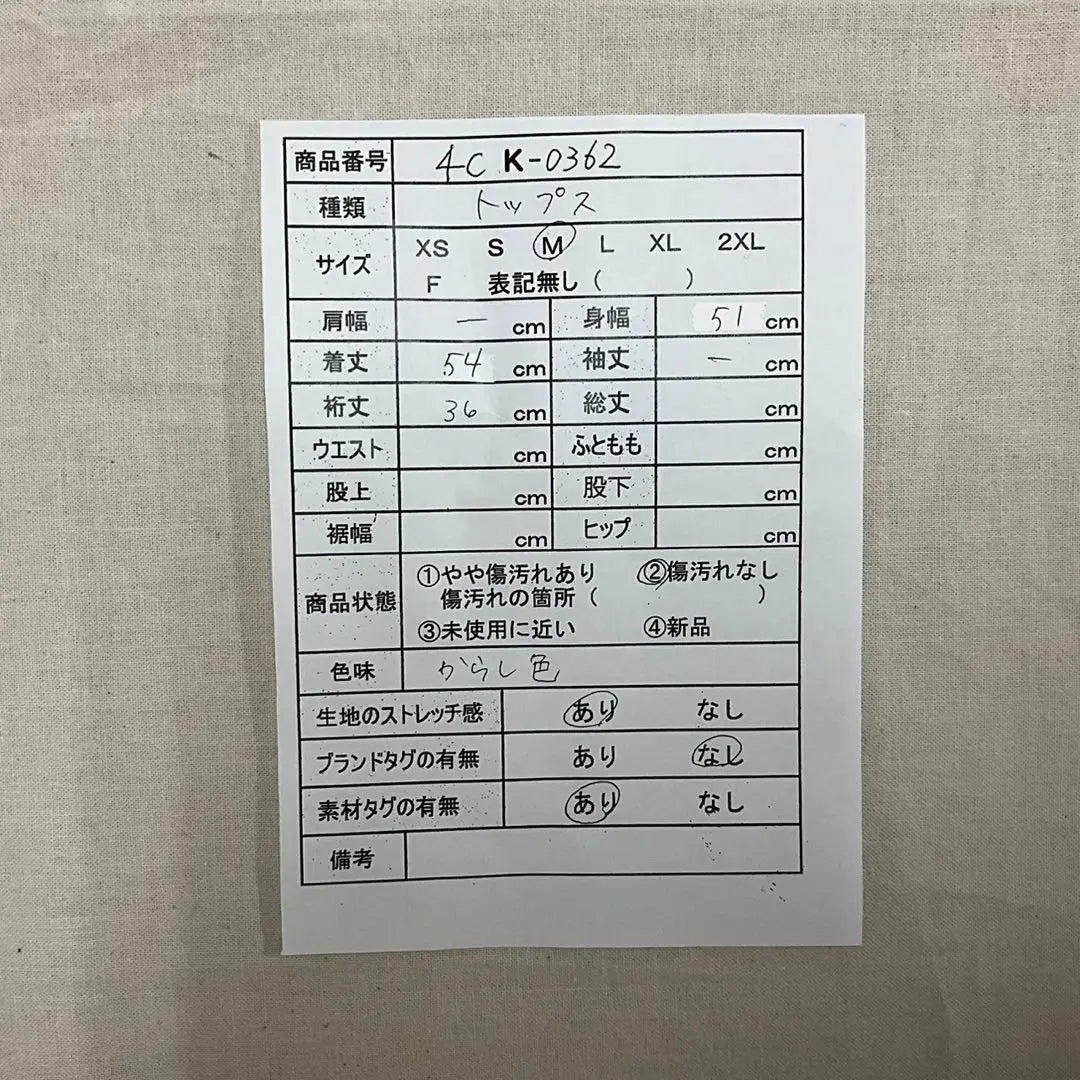 商品番号 4C K-0362
種類 トップス
サイズ XS S M L XL 2XL
F 表記無し（ ）
肩幅 ー cm 身幅 51 cm
着丈 54 cm 袖丈 ー cm
裄丈 36 cm 総丈 cm
ウエスト cm ふともも cm
股上 cm 股下 cm
裾幅 cm ヒップ cm
商品状態 ①やや傷汚れあり ②傷汚れなし
傷汚れの箇所（ ）
③未使用に近い ④新品
色味 からし色
生地のストレッチ感 あり なし
ブランドタグの有無 あり なし
素材タグの有無 あり なし
備考